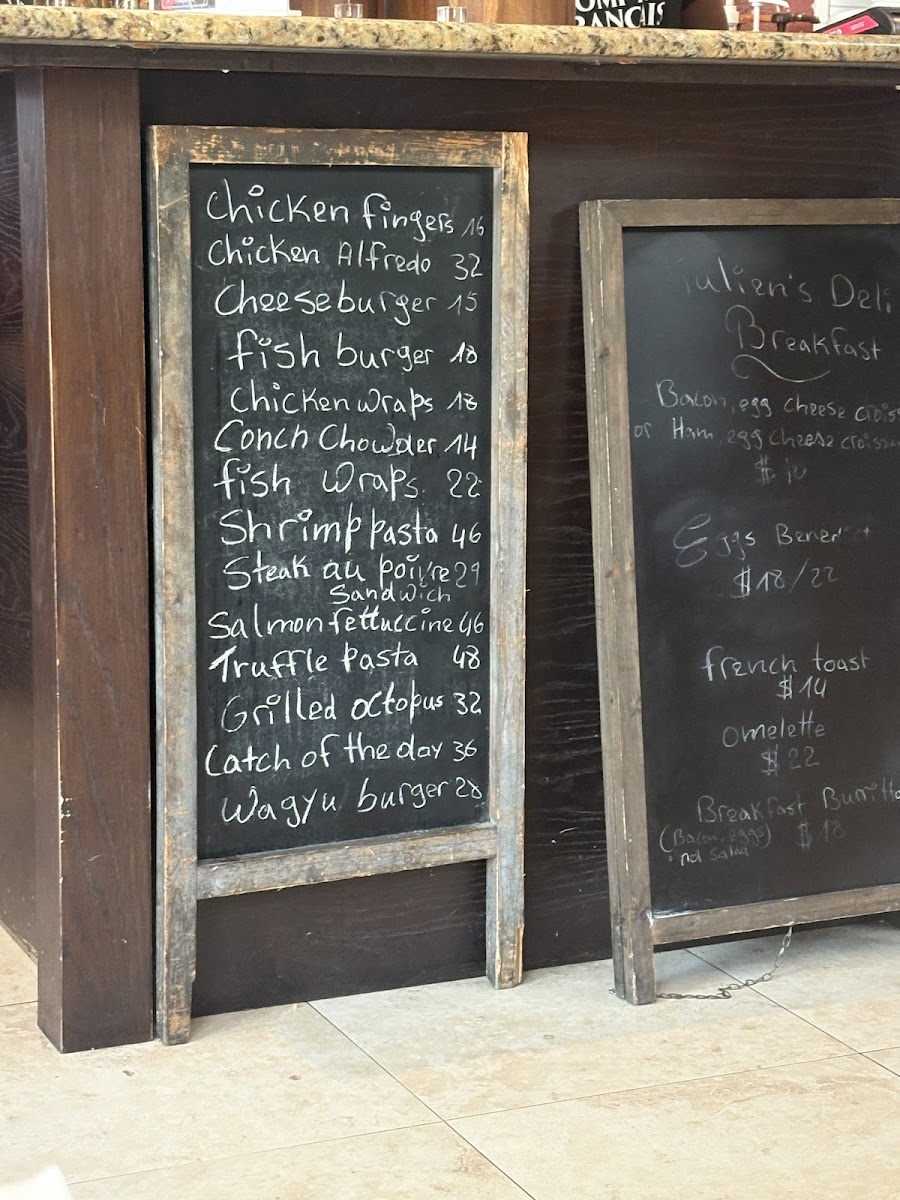 OMP
RANCIS
Chicken fingers 16
Chicken Alfredo 32
Cheeseburger 15
fish burger 18
Chicken wraps 18
Conch Chowder 14
fish wraps 22
Shrimp pasta 46
Steak au poivre 29
Sandwich
Salmon fettuccine 46
Truffle pasta 48
Grilled octopus 32
Catch of the day 36
Wagyu burger 28
Julien's Deli
Breakfast
Bacon, egg cheese croiss
or Ham, egg cheese croissa
$ 10
Eggs Benedict
$18/22
french toast
$14
omelette
$22
Breakfast Burrito
(Bacon, eggs) $18